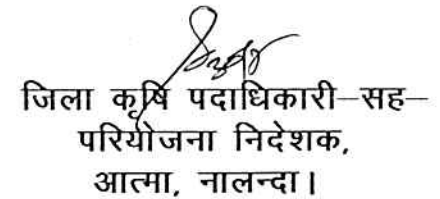 जिला कृषि पदाधिकारी–सह–
परियोजना निदेशक,
आत्मा, नालन्दा।